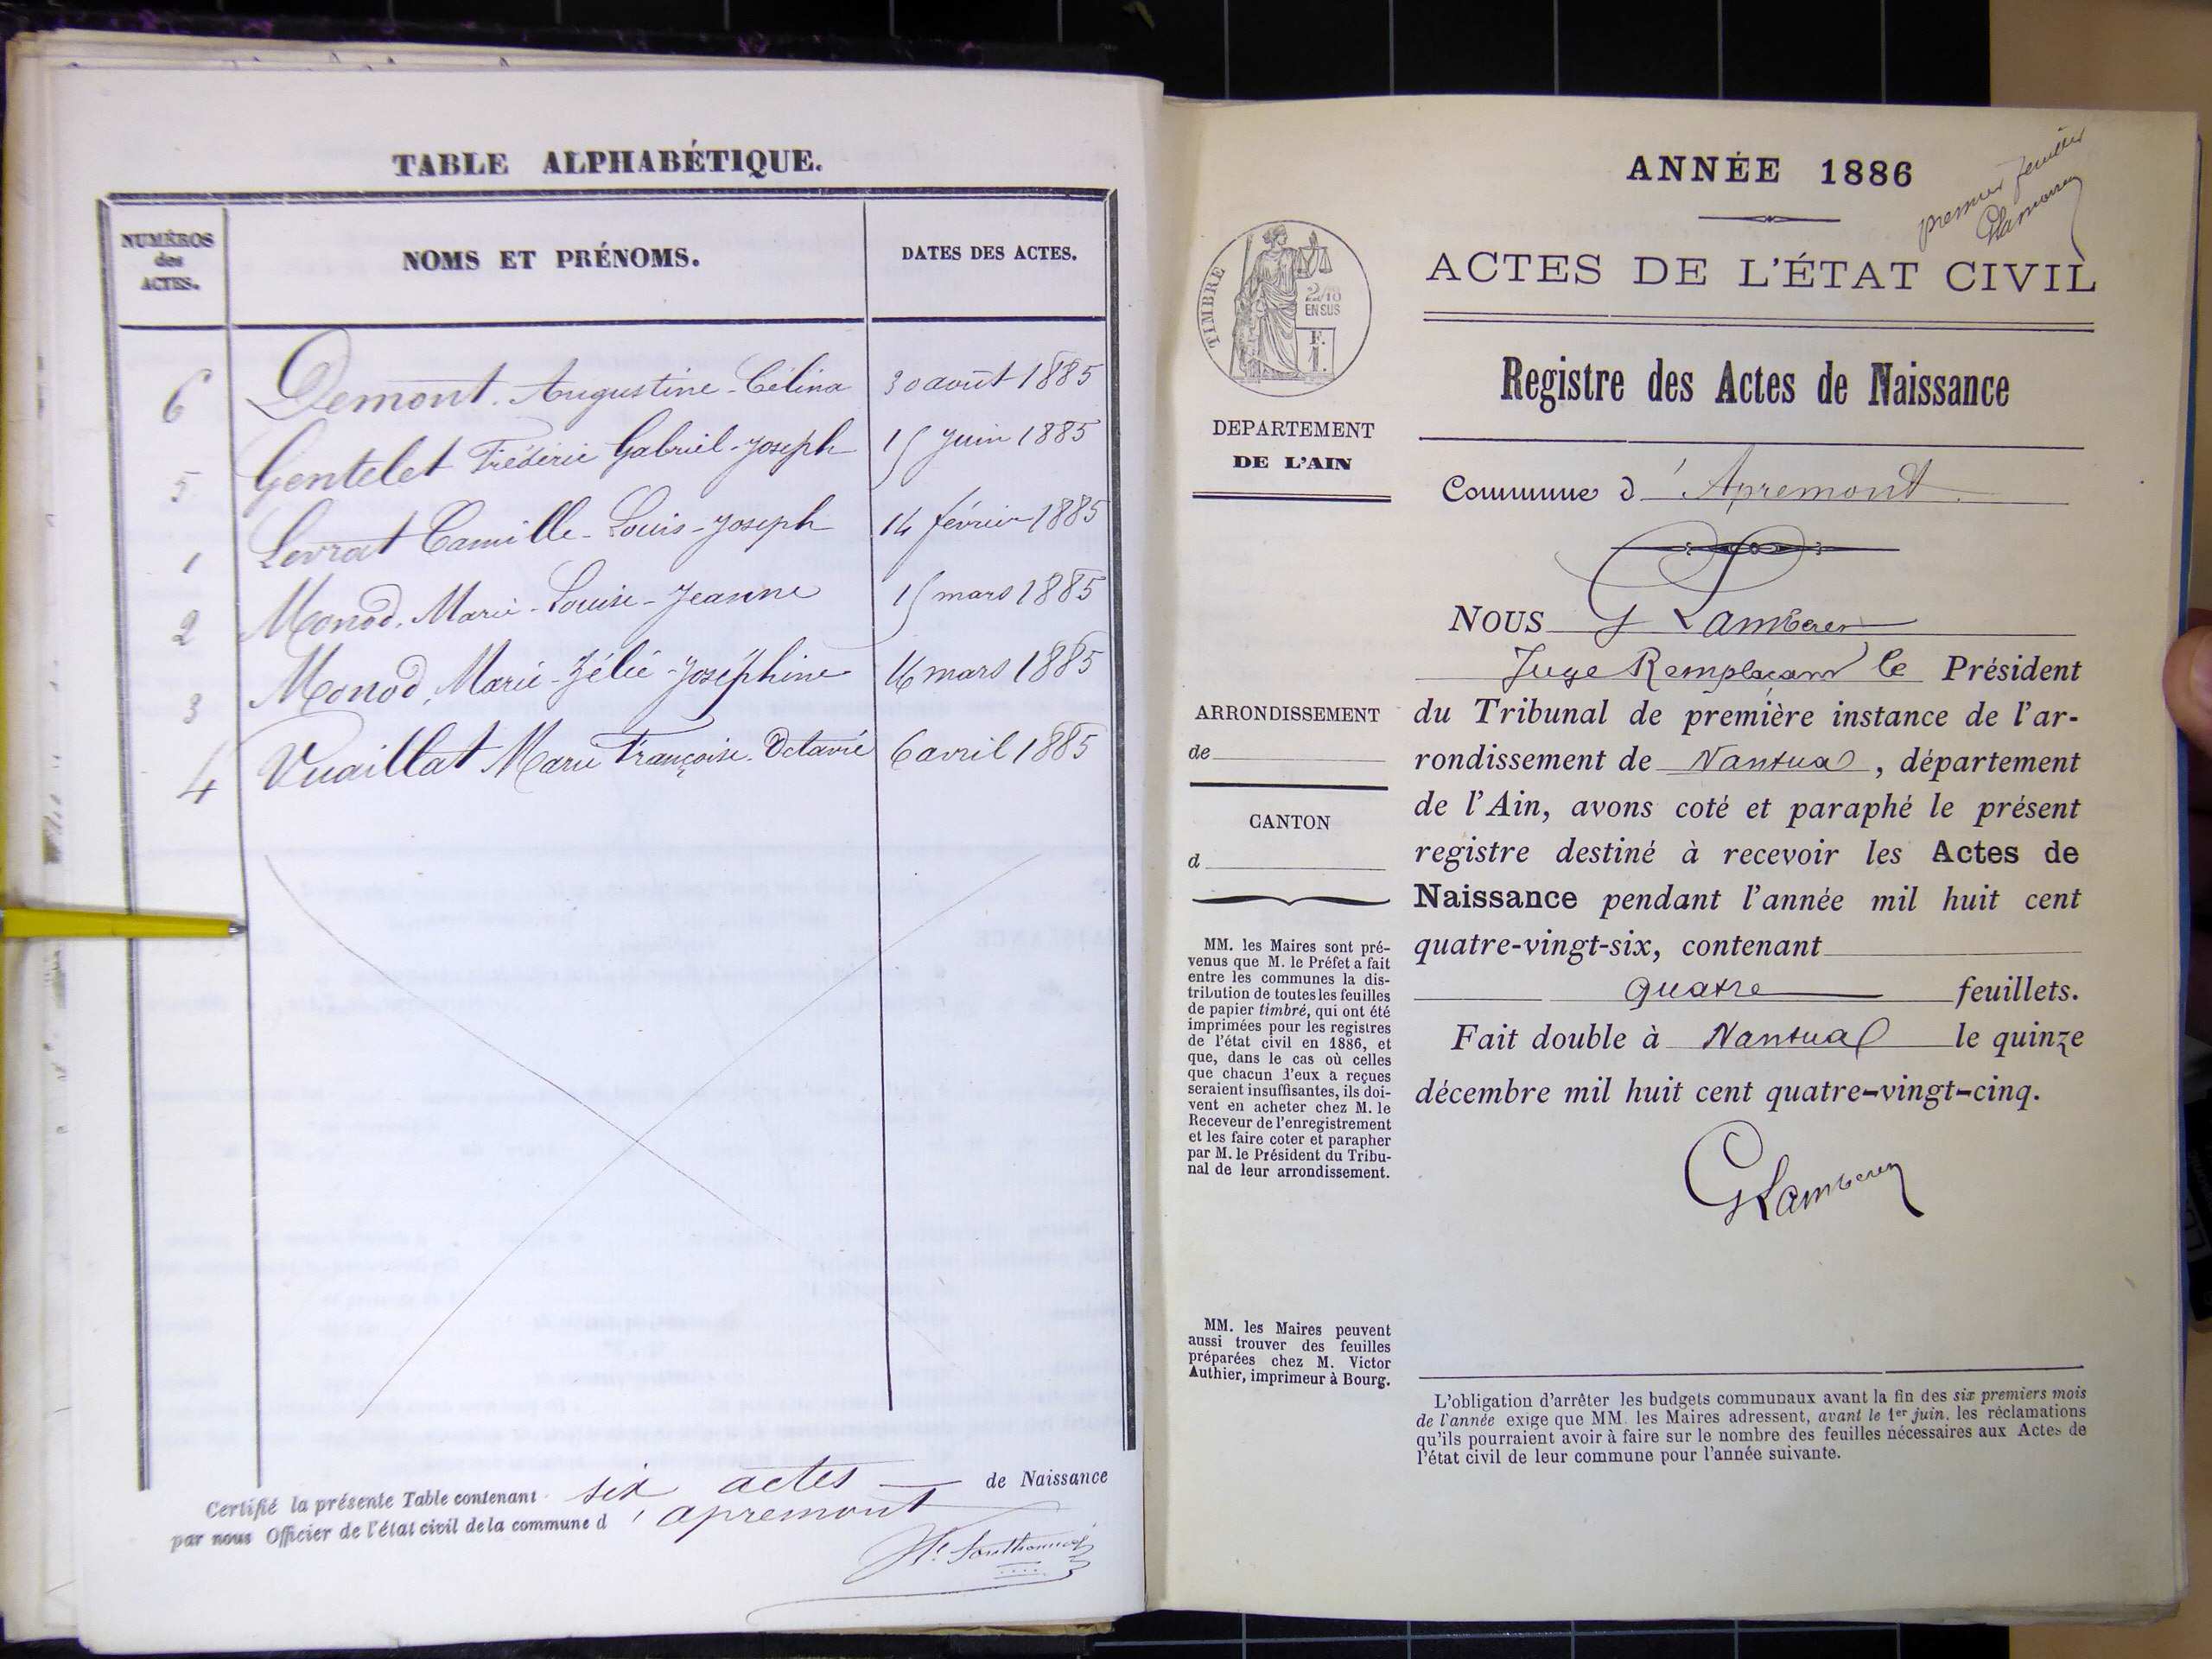 TABLE ALPHABÉTIQUE.
NUMÉROS
des
ACTES.
NOMS ET PRÉNOMS.
DATES DES ACTES.
6 Demont. Augustine-Célina 30 août 1885
5 Gentelet Frédéric Gabriel-Joseph 15 juin 1885
1 Levrat Camille-Louis-Joseph 14 février 1885
2 Monod. Marie-Louise-Jeanne 15 mars 1885
3 Monod, Marie-Zélie-Joséphine 16 mars 1885
4 Vuaillat Marie Françoise. Octavie 6 avril 1885
Certifié la présente Table contenant six actes de Naissance
par nous Officier de l'état civil de la commune d'apremont
premier feuillet
ANNÉE 1886
ACTES DE L'ÉTAT CIVIL
TIMBRE
2/10
EN SUS
F.
1.
Registre des Actes de Naissance
DEPARTEMENT
DE L'AIN
Commune d'Apremont
NOUS G Lamberet
Juge Remplacant le Président
du Tribunal de première instance de l'ar-
rondissement de Nantua, département
de l'Ain, avons coté et paraphé le présent
registre destiné à recevoir les Actes de
Naissance pendant l'année mil huit cent
quatre-vingt-six, contenant
quatre feuillets.
Fait double à Nantua le quinze
décembre mil huit cent quatre-vingt-cinq.
ARRONDISSEMENT
de
CANTON
d
MM. les Maires sont pré-
venus que M. le Préfet a fait
entre les communes la dis-
tribution de toutes les feuilles
de papier timbré, qui ont été
imprimées pour les registres
de l'état civil en 1886, et
que, dans le cas où celles
que chacun d'eux a reçues
seraient insuffisantes, ils doi-
vent en acheter chez M. le
Receveur de l'enregistrement
et les faire coter et parapher
par M. le Président du Tribu-
nal de leur arrondissement.
MM. les Maires peuvent
aussi trouver des feuilles
préparées chez M. Victor
Authier, imprimeur à Bourg.
L'obligation d'arrêter les budgets communaux avant la fin des six premiers mois
de l'année exige que MM. les Maires adressent, avant le 1er juin, les réclamations
qu'ils pourraient avoir à faire sur le nombre des feuilles nécessaires aux Actes de
l'état civil de leur commune pour l'année suivante.